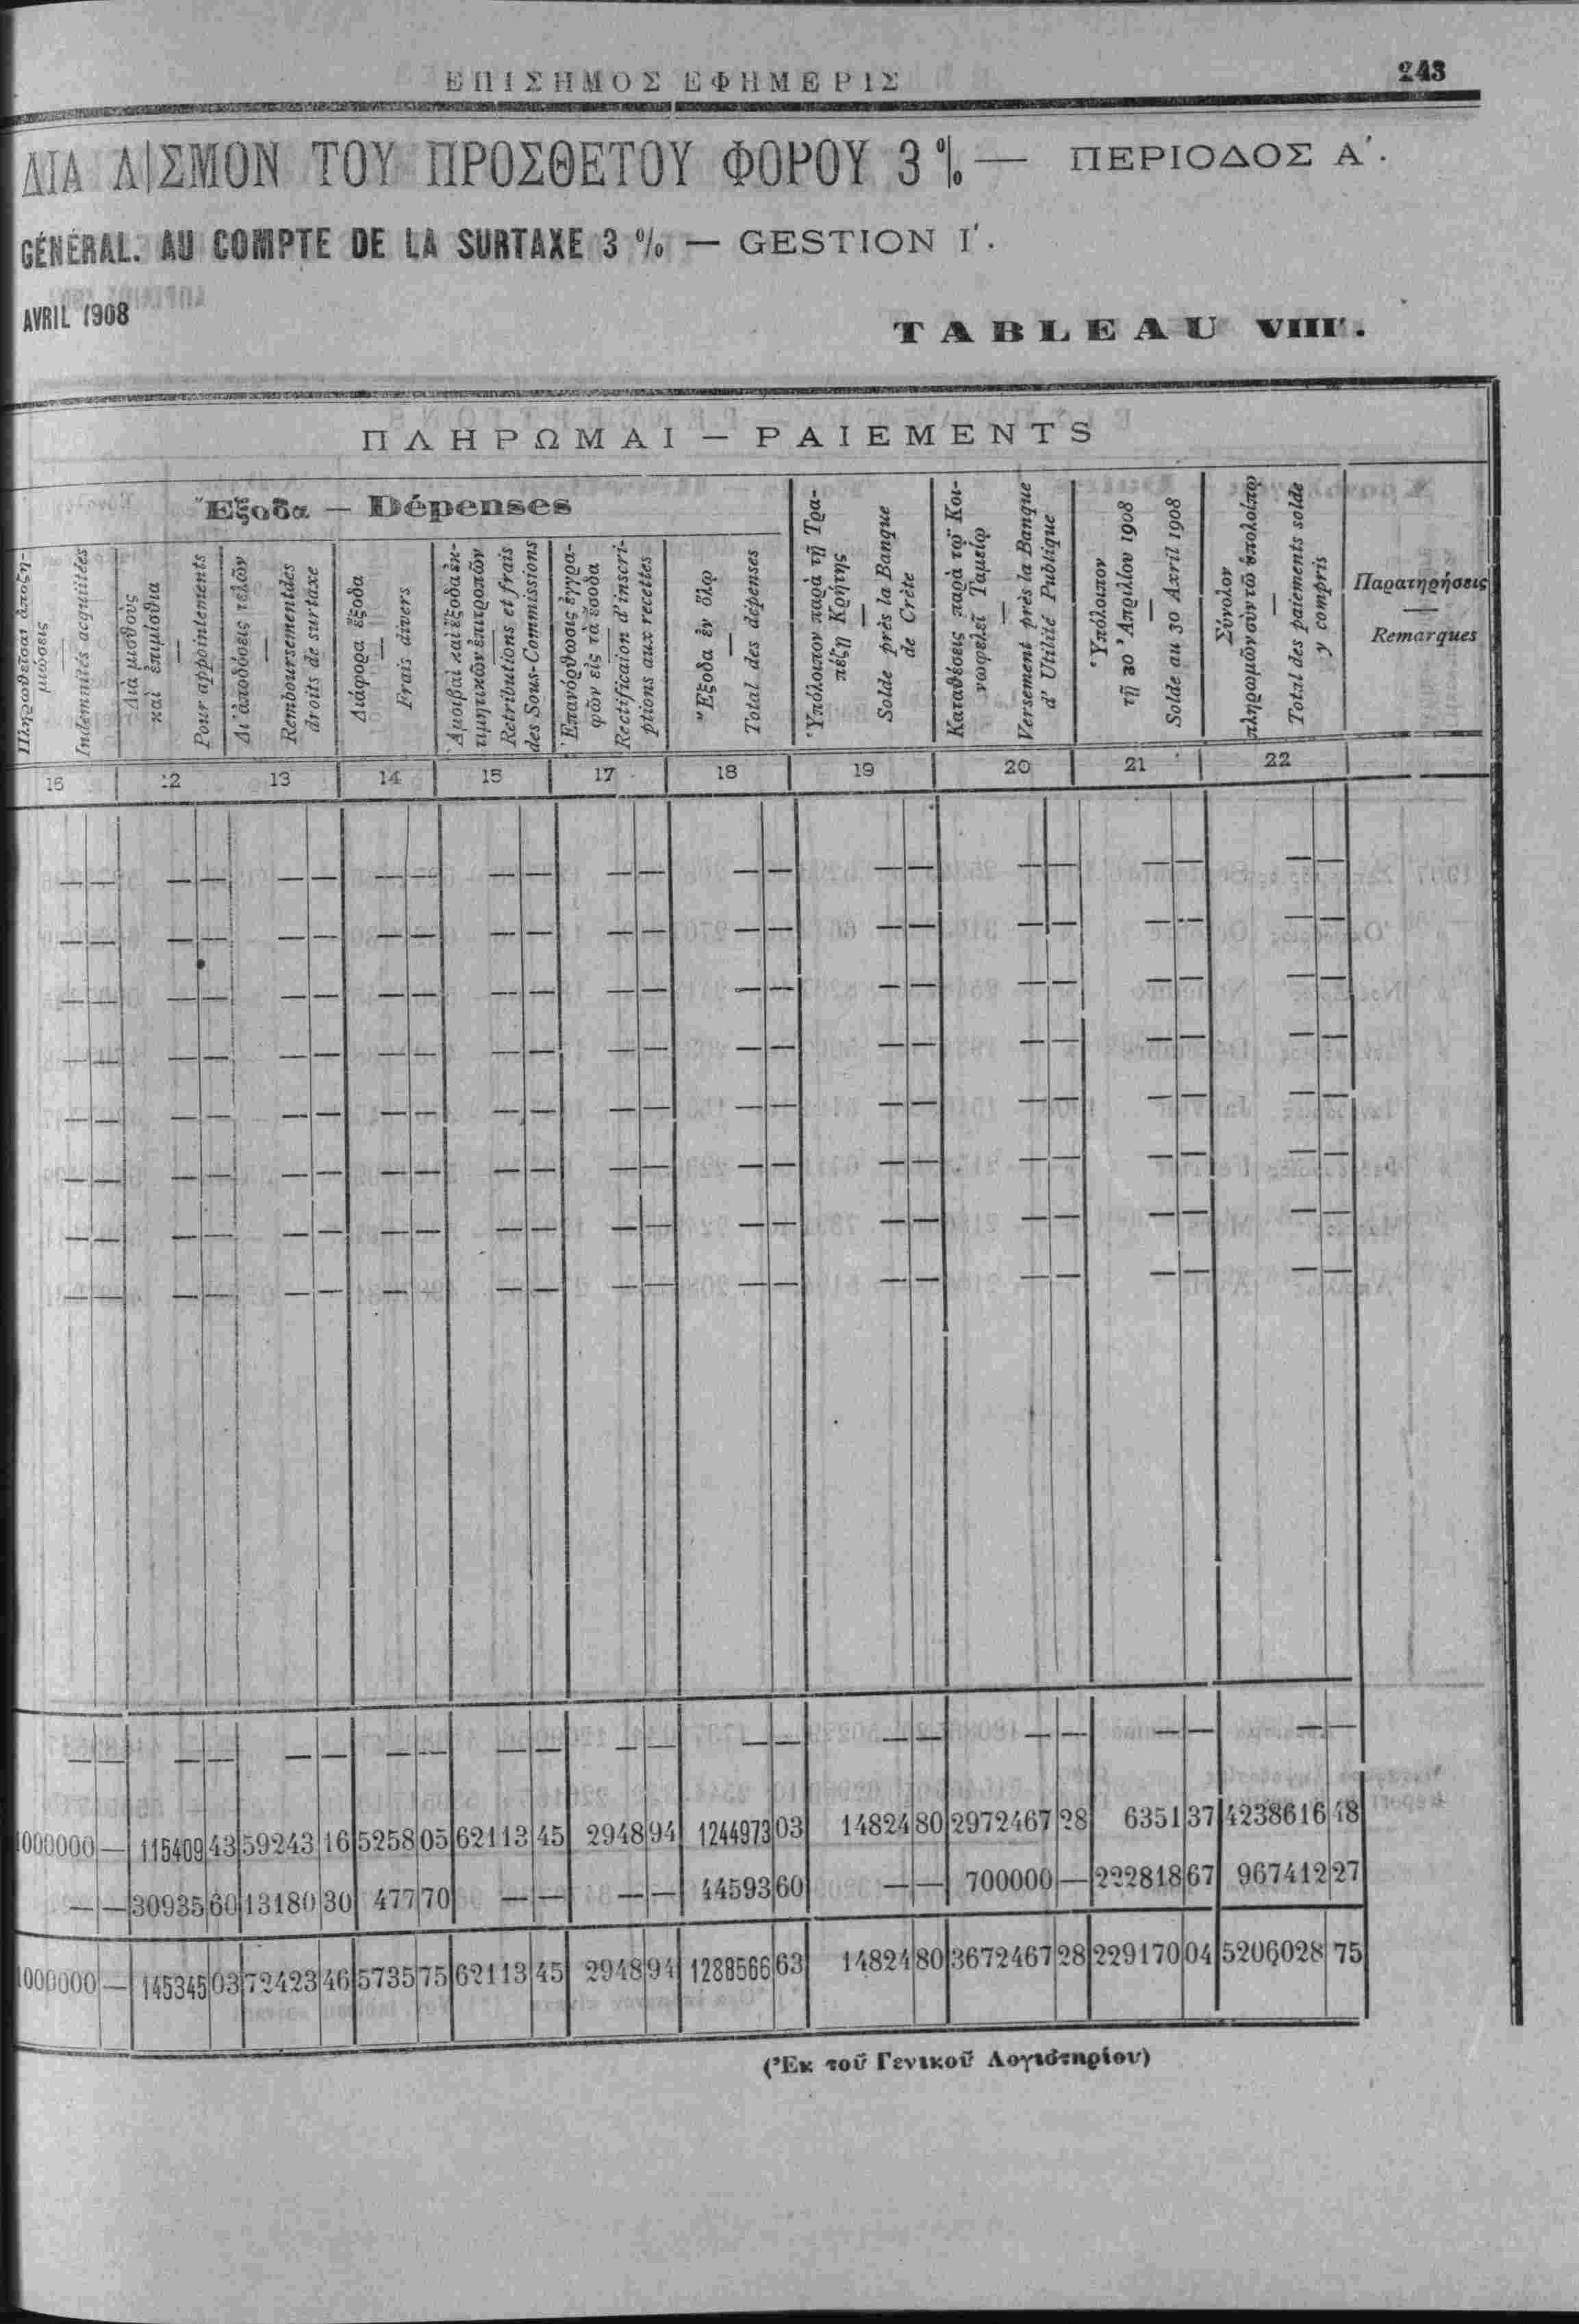 ΕΠΙΣΗΜΟΣ ΕΦΗΜΕΡΙΣ
243
ΔΙΑ ΛΙΣΜΟΝ ΤΟΥ ΠΡΟΣΘΕΤΟΥ ΦΟΡΟΥ 3 % — ΠΕΡΙΟΔΟΣ Α΄.
GÉNÉRAL. AU COMPTE DE LA SURTAXE 3 % — GESTION I'.
AVRIL 1908
TABLEAU VIII'.
ΠΛΗΡΩΜΑΙ — PAIEMENTS
Ἔξοδα — Dépenses
Πληρωθεῖσαι ἀποζη-
μιώσεις
—
Indemnités acquittées
Διὰ μισθοὺς
καὶ ἐπιμίσθια
—
Pour appointements
Δι' ἀποδόσεις τελῶν
—
Remboursementdes
droits de surtaxe
Διάφορα ἔξοδα
—
Frais divers
Ἀμοιβαὶ καὶ ἔξοδα ἐκ-
τιμητικῶν ἐπιτροπῶν
—
Retributions et frais
des Sous-Commissions
Ἐπανόρθωσις ἐγγρα-
φῶν εἰς τὰ ἔσοδα
—
Rectificaion d'inscri-
ptions aux recettes
Ἔξοδα ἐν ὅλῳ
—
Total des dépenses
Ὑπόλοιπον παρὰ τῇ Τρα-
πέζῃ Κρήτης
—
Solde près la Banque
de Crète
Καταθέσεις παρὰ τῷ Κοι-
νωφελεῖ Ταμείῳ
—
Versement près la Banque
d' Utilité Publique
Ὑπόλοιπον
τῇ 30 Ἀπριλίου 1908
—
Solde au 30 Avril 1908
Σύνολον
πληρωμῶν σὺν τῷ ὑπολοίπῳ
—
Total des paiements solde
y compris
Παρατηρήσεις
—
Remarques
16 12 13 14 15 17 18 19 20 21 22
— — — — — — — — — — — — — — — — — — — — — —
— — — — — — — — — — — — — — — — — — — — — —
— — — — — — — — — — — — — — — — — — — — — —
— — — — — — — — — — — — — — — — — — — — — —
— — — — — — — — — — — — — — — — — — — — — —
— — — — — — — — — — — — — — — — — — — — — —
— — — — — — — — — — — — — — — — — — — — — —
— — — — — — — — — — — — — — — — — — — — — —
— — — — — — — — — — — — — — — — — — — — — —
1000000 — 115409 43 59243 16 5258 05 62113 45 2948 94 1244973 03 14824 80 2972467 28 6351 37 4238616 48
— — 30935 60 13180 30 477 70 — — — — 44593 60 — — 700000 — 222818 67 967412 27
1000000 — 145345 03 72423 46 5735 75 62113 45 2948 94 1288566 63 14824 80 3672467 28 229170 04 5206028 75
(Ἐκ τοῦ Γενικοῦ Λογιστηρίου)